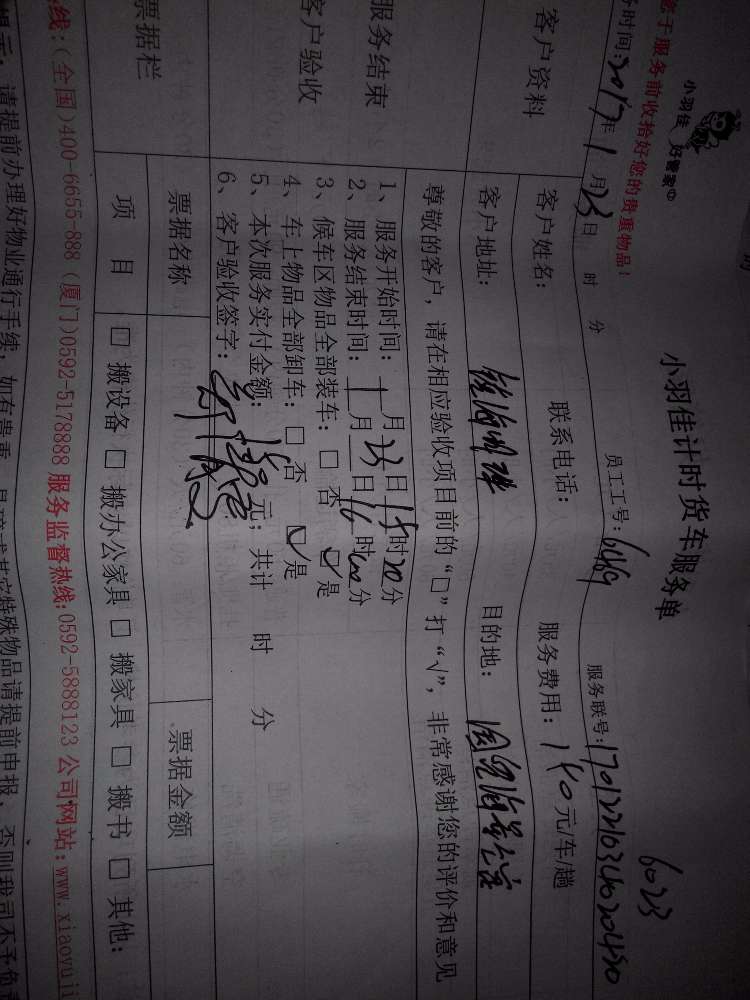 小羽佳计时货车服务单
小羽佳 好警象
6023
于服务前收拾好您的贵重物品!
员工工号: 6489 服务联号:
时间: 2017年1月23日 时 分
客户资料
客户姓名: 联系电话: 服务费用: 140元/车/趟
客户地址: 目的地:
尊敬的客户, 请在相应验收项目前的“□”打“√”, 非常感谢您的评价和意见
服务结束
客户验收
1、服务开始时间: 1月23日15时20分
2、服务结束时间: 1月23日16时00分
3、候车区物品全部装车: □ 否 □ 是
4、车上物品全部卸车: □ 否 □ 是
5、本次服务实付金额: 元; 共计 时 分
6、客户验收签字:
票据栏
票据名称 票据金额
项 目 □ 搬设备 □ 搬办公家具 □ 搬家具 □ 搬书 □ 其他:
线: (全国)400-6655-888 (厦门)0592-5178888 服务监督热线:0592-5888123 公司网站: www.xiaoyuji
请提前办理好物业通行手续, 如有贵重、易碎或其它特殊物品请提前申报, 否则我司不予负责